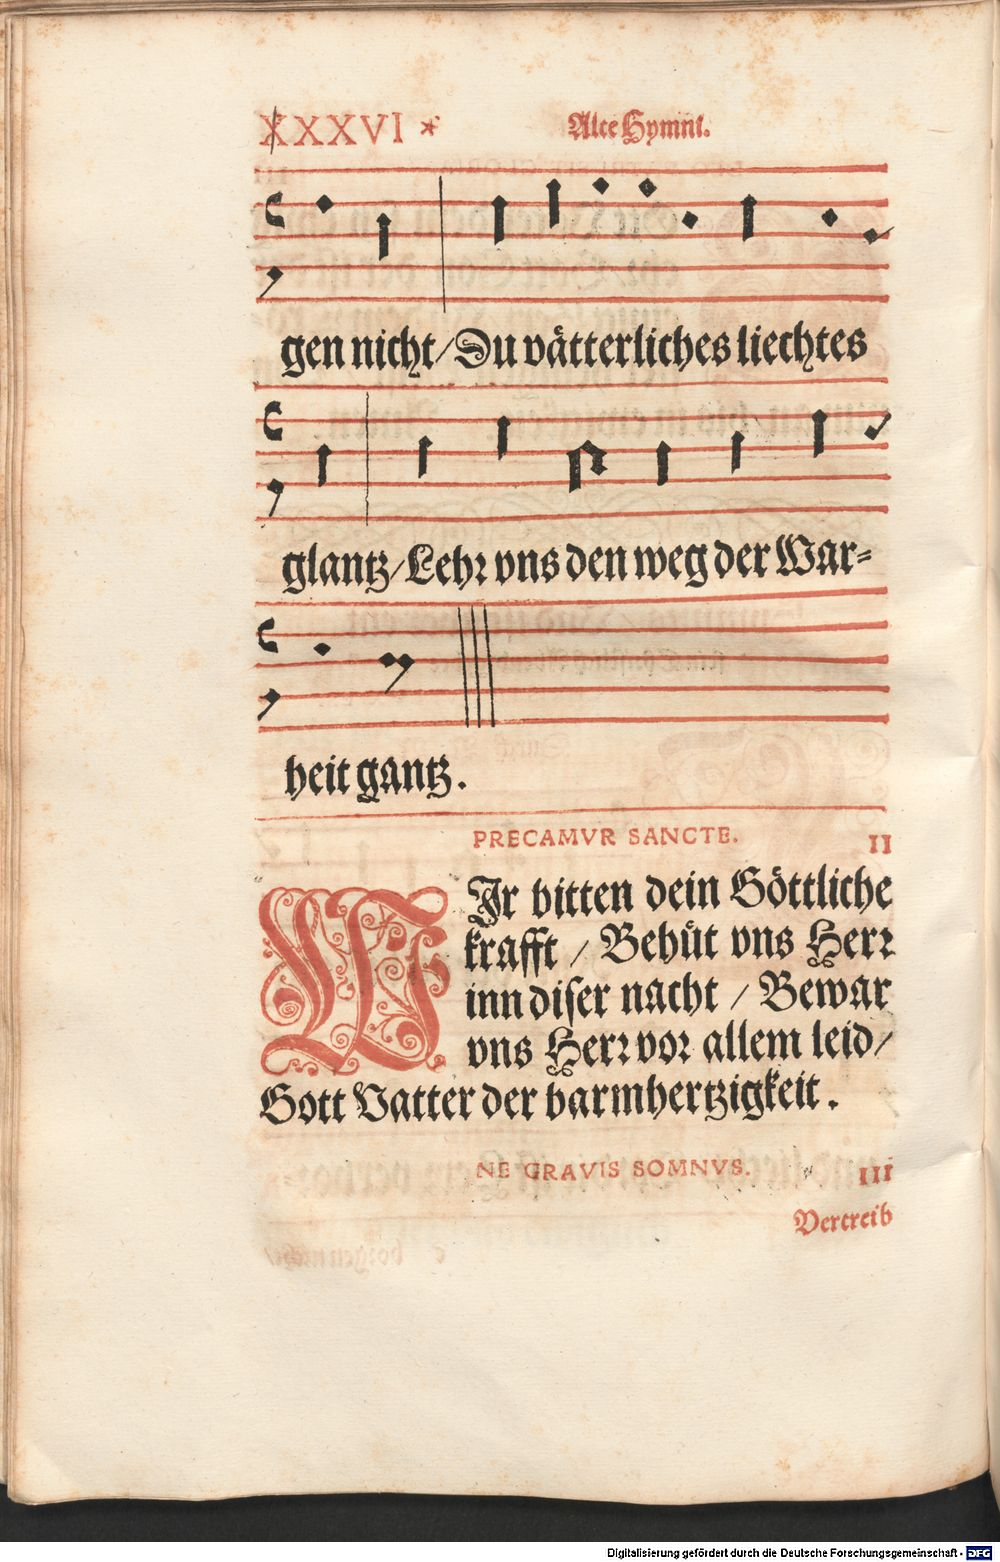 XXXVI *
Alte Hymni.
gen nicht/ Du vätterliches liechtes
glantz/ Lehr vns den weg der War-
heit gantz.
PRECAMVR SANCTE. II
WJr bitten dein Göttliche
krafft / Behüt vns Herr
inn diser nacht / Bewar
vns Herr vor allem leid/
Gott Vatter der barmhertzigkeit.
NE GRAVIS SOMNVS. III
Vertreib
Digitalisierung gefördert durch die Deutsche Forschungsgemeinschaft - DFG